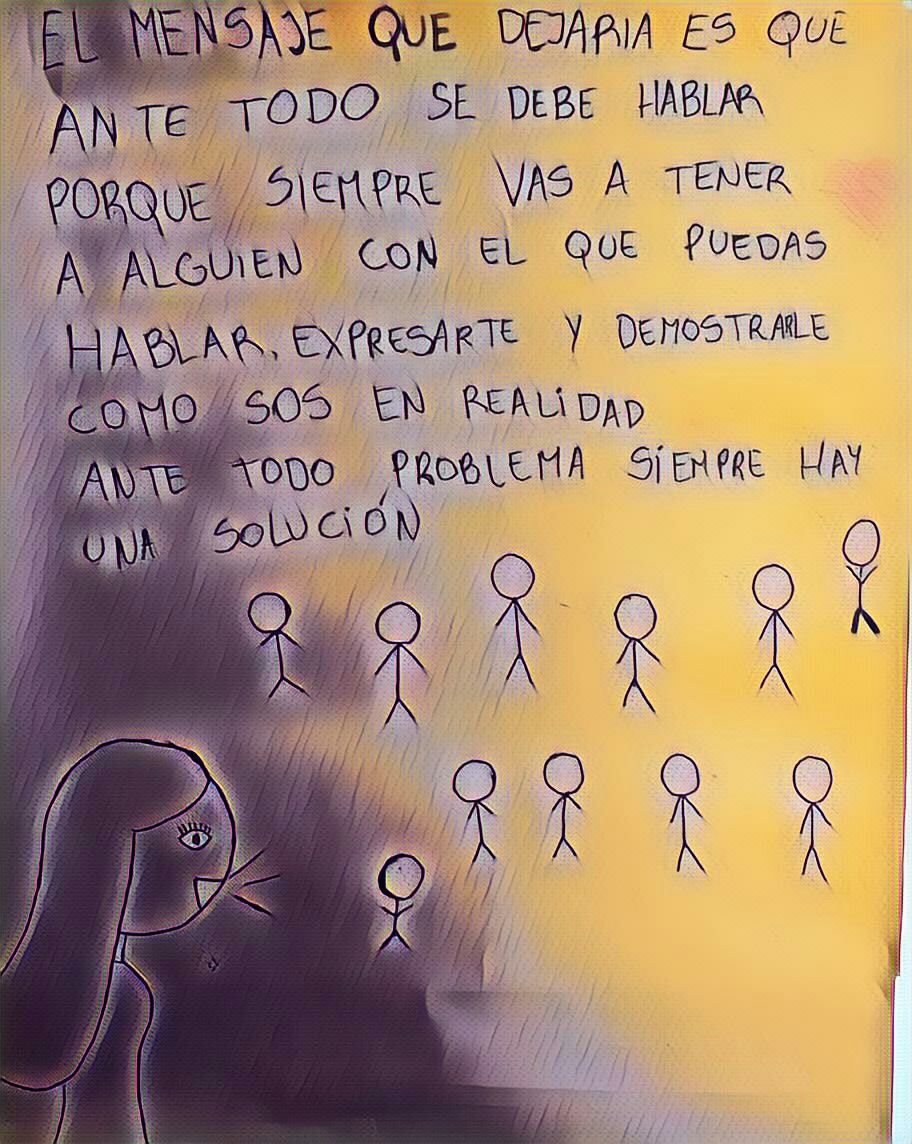 EL MENSAJE QUE DEJARIA ES QUE
ANTE TODO SE DEBE HABLAR
PORQUE SIEMPRE VAS A TENER
A ALGUIEN CON EL QUE PUEDAS
HABLAR, EXPRESARTE Y DEMOSTRARLE
COMO SOS EN REALIDAD
ANTE TODO PROBLEMA SIEMPRE HAY
UNA SOLUCIÓN